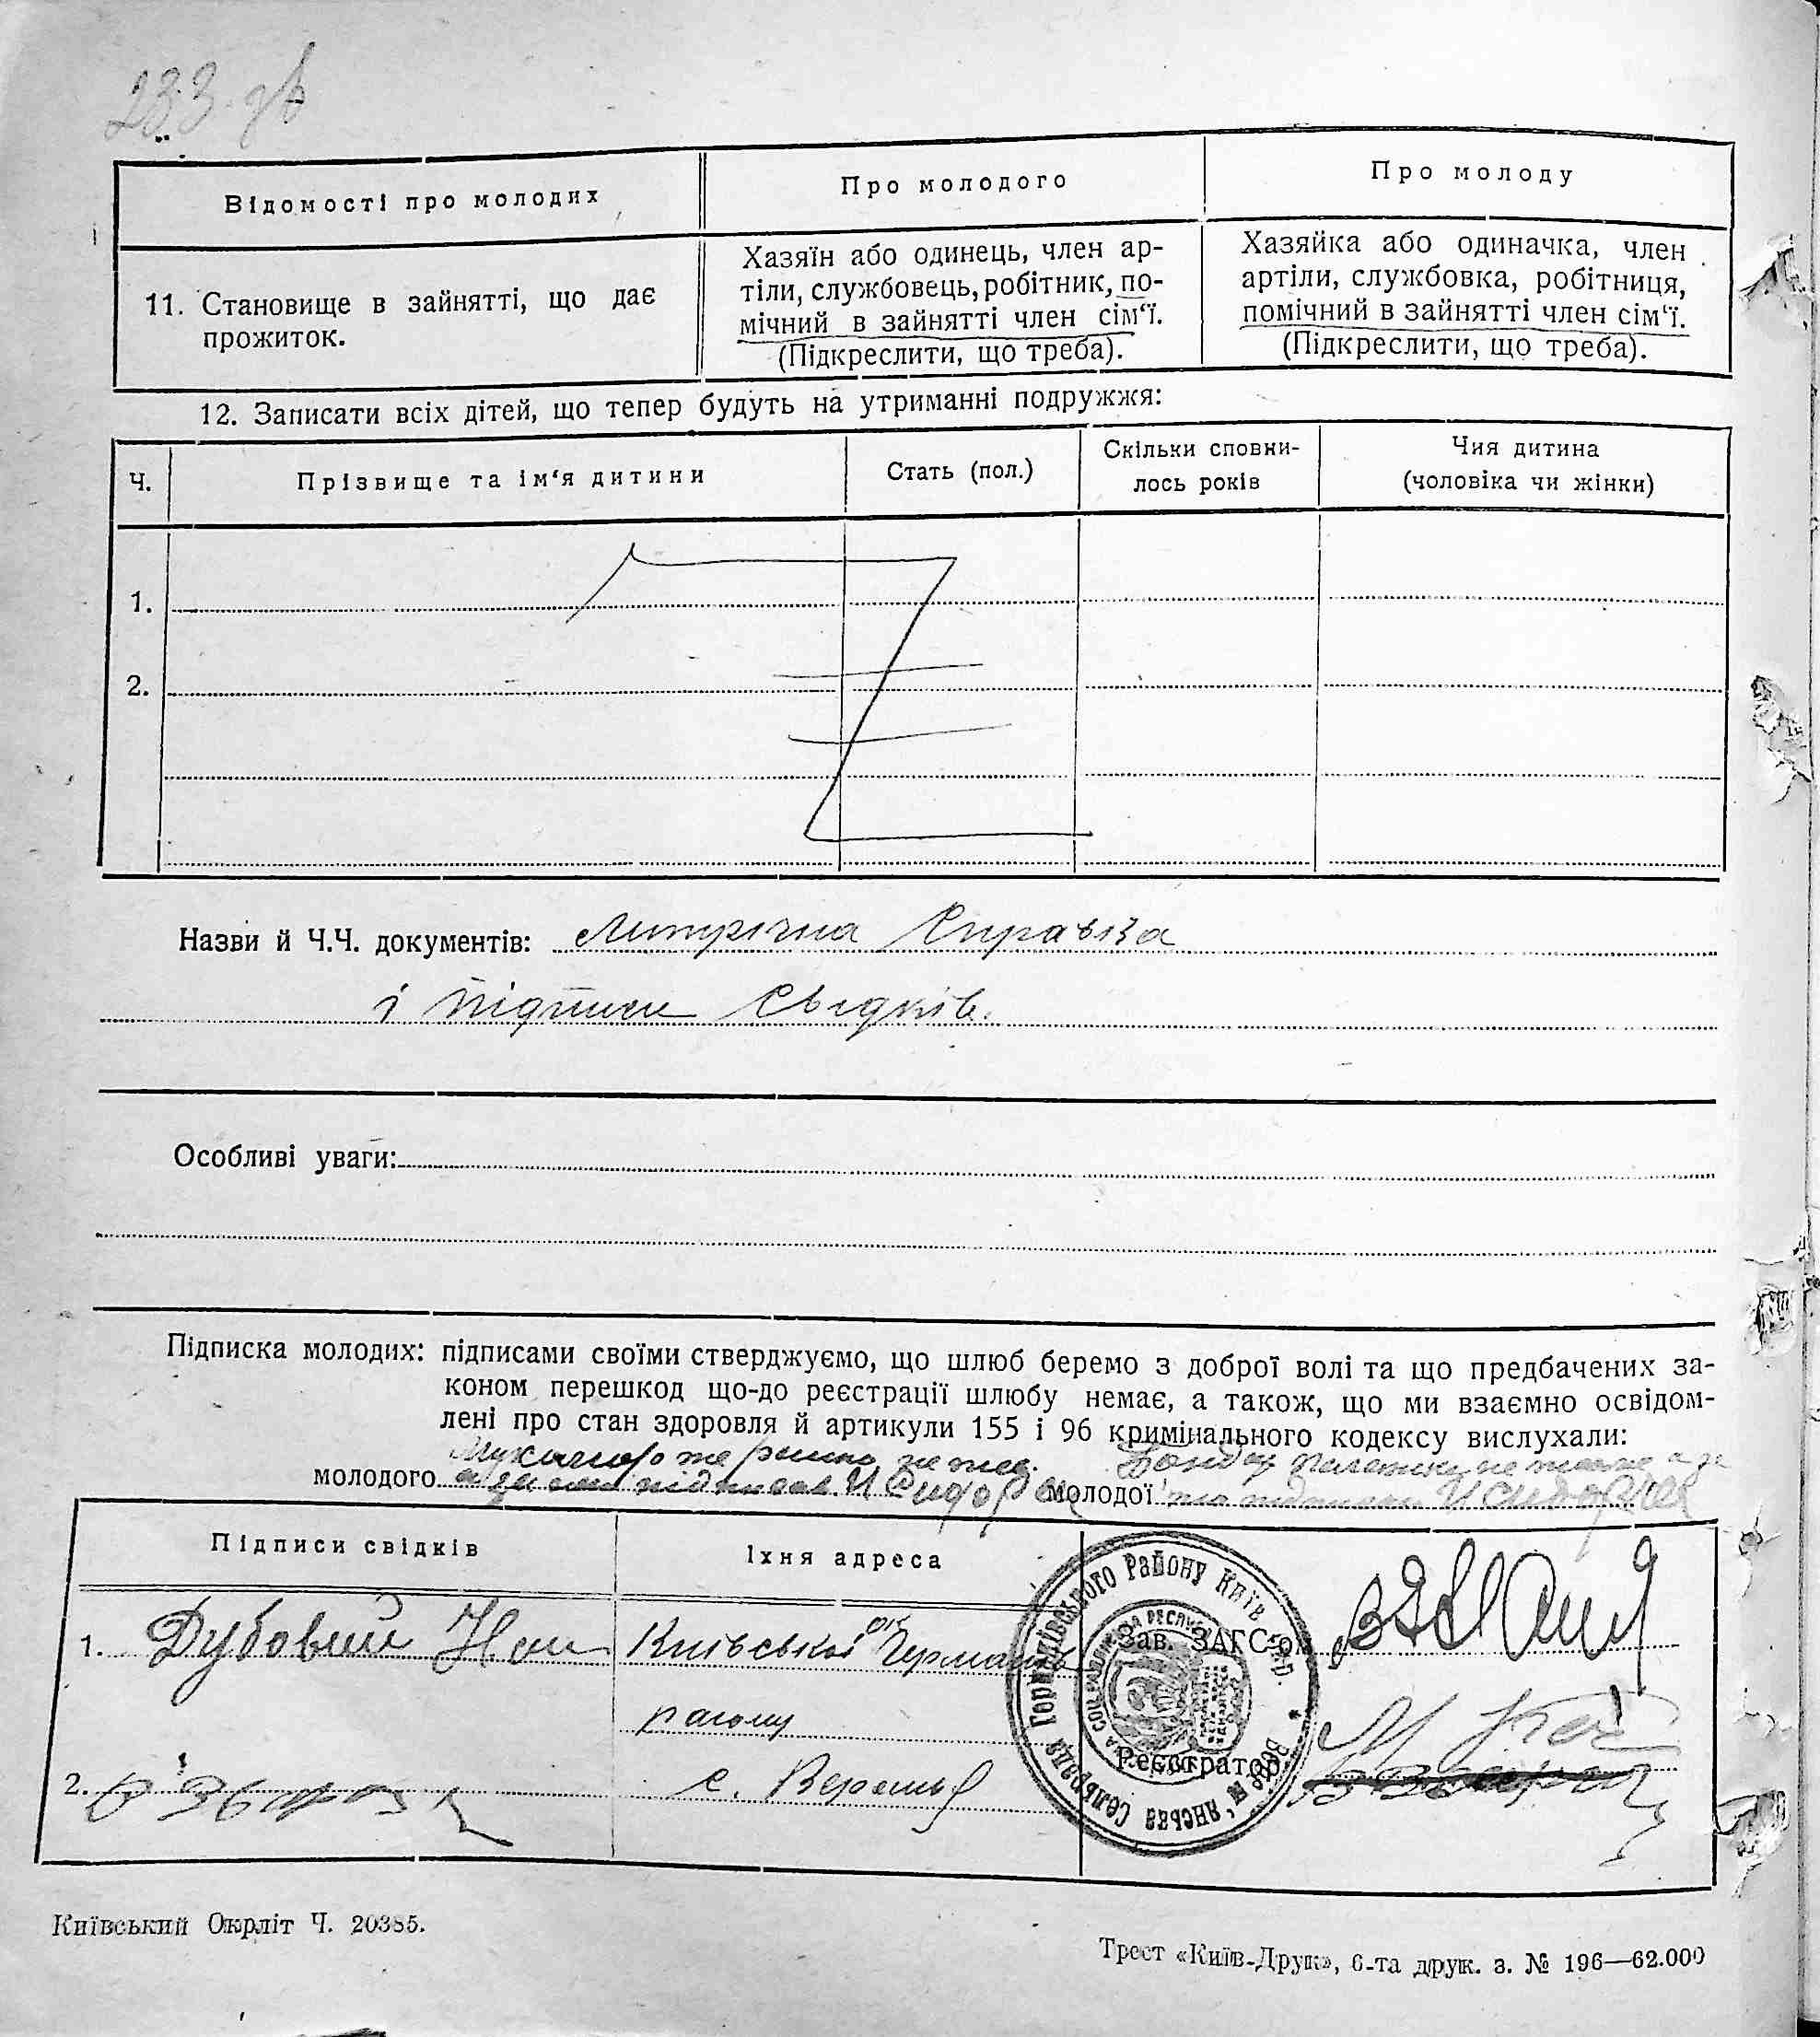 233 зв
Відомості про молодих
Про молодого
Про молоду
11. Становище в зайнятті, що дає
прожиток.
Хазяїн або одинець, член ар-
тіли, службовець, робітник, по-
мічний в зайнятті член сім‘ї.
(Підкреслити, що треба).
Хазяйка або одиначка, член
артіли, службовка, робітниця,
помічний в зайнятті член сім‘ї.
(Підкреслити, що треба).
12. Записати всіх дітей, що тепер будуть на утриманні подружжя:
Ч.
Прізвище та ім‘я дитини
Стать (пол.)
Скільки сповни-
лось років
Чия дитина
(чоловіка чи жінки)
1.
2.
Назви й Ч.Ч. документів: Метрична
і підписи свидків.
Особливі уваги:
Підписка молодих: підписами своїми стверджуємо, що шлюб беремо з доброї волі та що предбачених за-
коном перешкод що-до реєстрації шлюбу немає, а також, що ми взаємно освідом-
лені про стан здоровля й артикули 155 і 96 кримінального кодексу вислухали:
молодого підписав
молодої
Підписи свідків
Їхня адреса
1. Дубовий
Київської ок
району
2.
с.
Зав. ЗАГС‘ом
Реєстратор
Київський Окрліт Ч. 20385.
Трест «Київ-Друк», 6-та друк. з. № 196—62.000